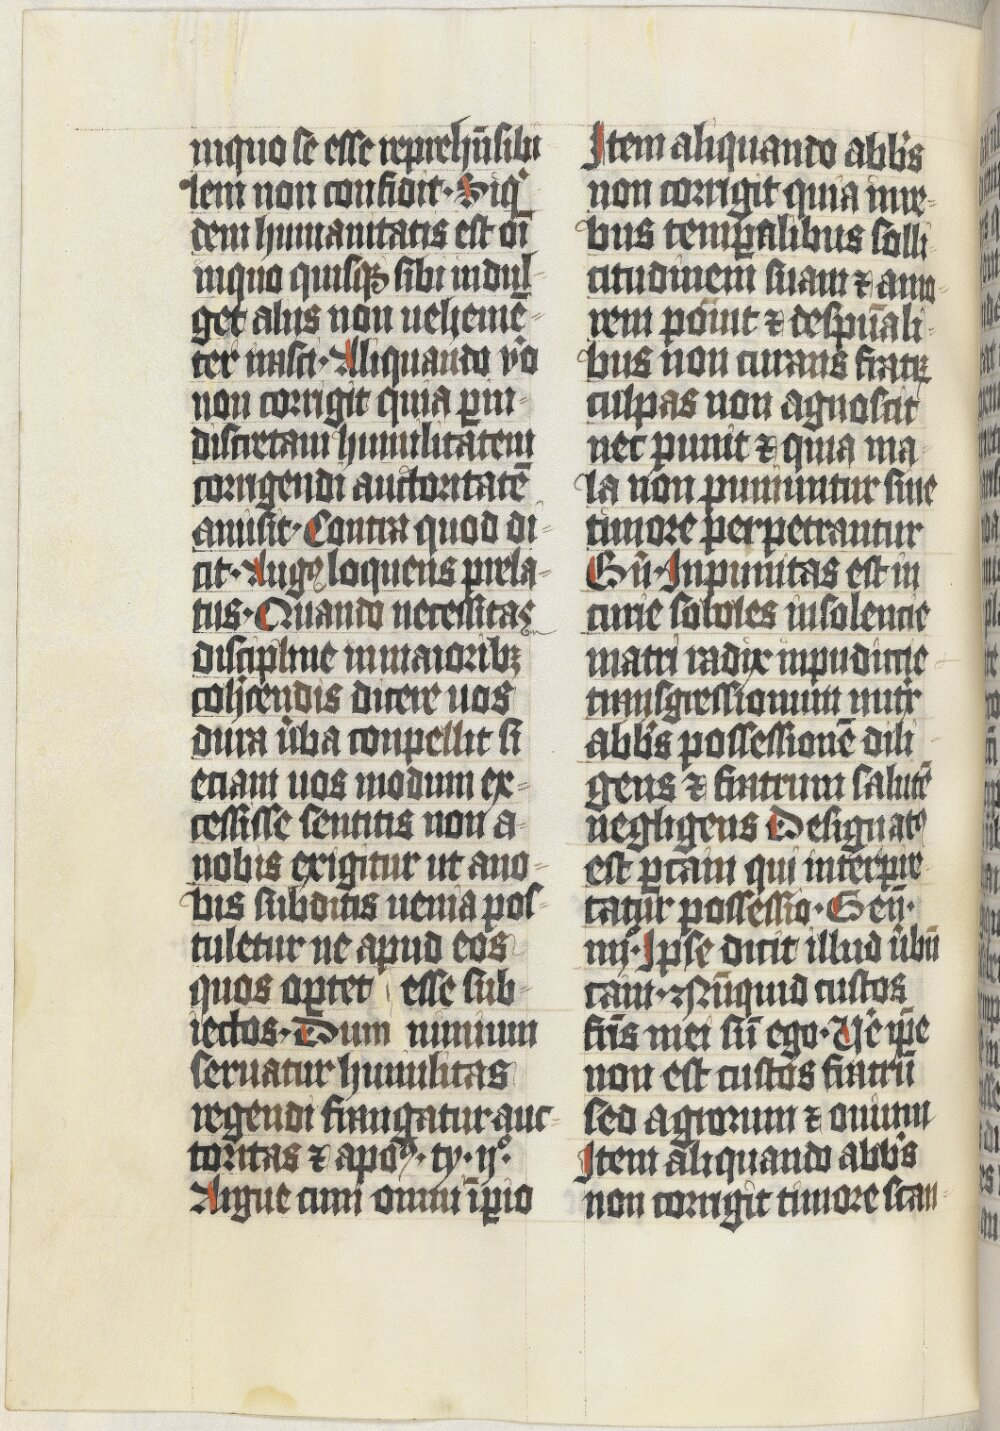 inquo se esse reprehēsibi
lem non confidit · Siq̇
dem humanitatis est oī
inquo quisqꝫ sibi indul-
get aliis non uehemē-
ter irasci · Aliquando v̾o
non corrigit quia ꝑ in-
discretam humilitatem
corrigendi auctoritatē
amisit · Contra quod di-
cit · Augꝰ loquens prela-
tus · Quando necessitas
discipline inmaioribꝫ
cohꝫcendis dicere uos
dura ūba conpellit si
eciam uos modum ex-
cessisse sentitis non a-
uobis exigitur ut auo-
bis subditis uenia pos-
tuletur ne apud eos
quos oꝑtet esse sub-
iectos · Dum nimium
seruatur humilitas
regendi frangatur auc-
toritas ⁊ apoꝰ · ty · ijᵒ ·
Argue cum omni īꝑio
Item aliquando abb̾s
non corrigit quia in re-
bus temꝑalibus solli-
citudinem suam ⁊ amo-
rem pōnit ⁊ de spūali-
bus non curans fratꝝ
culpas non agnoscit
nec punit ⁊ quia ma-
la non puniuntur sine
timore perpetrantur
Inpunitas est in
curie soboles insolencie
matri radix inpudicie
transgressionum nutr̄
abb̾s possessionē dili-
gens ⁊ fratrum salutē
negligens Designatꝰ
est ꝑ cain qui interpre-
tatur possessio · Geñ ·
iiijᵒ · Ipse dicit illud ūbū
cain · Nūquid custos
fr̄is mei sū ego · Vˀe ip̄e
non est custos fratrū
sed agrorum ⁊ ouium
Item aliquando abb̾s
non corrigit timore scan-